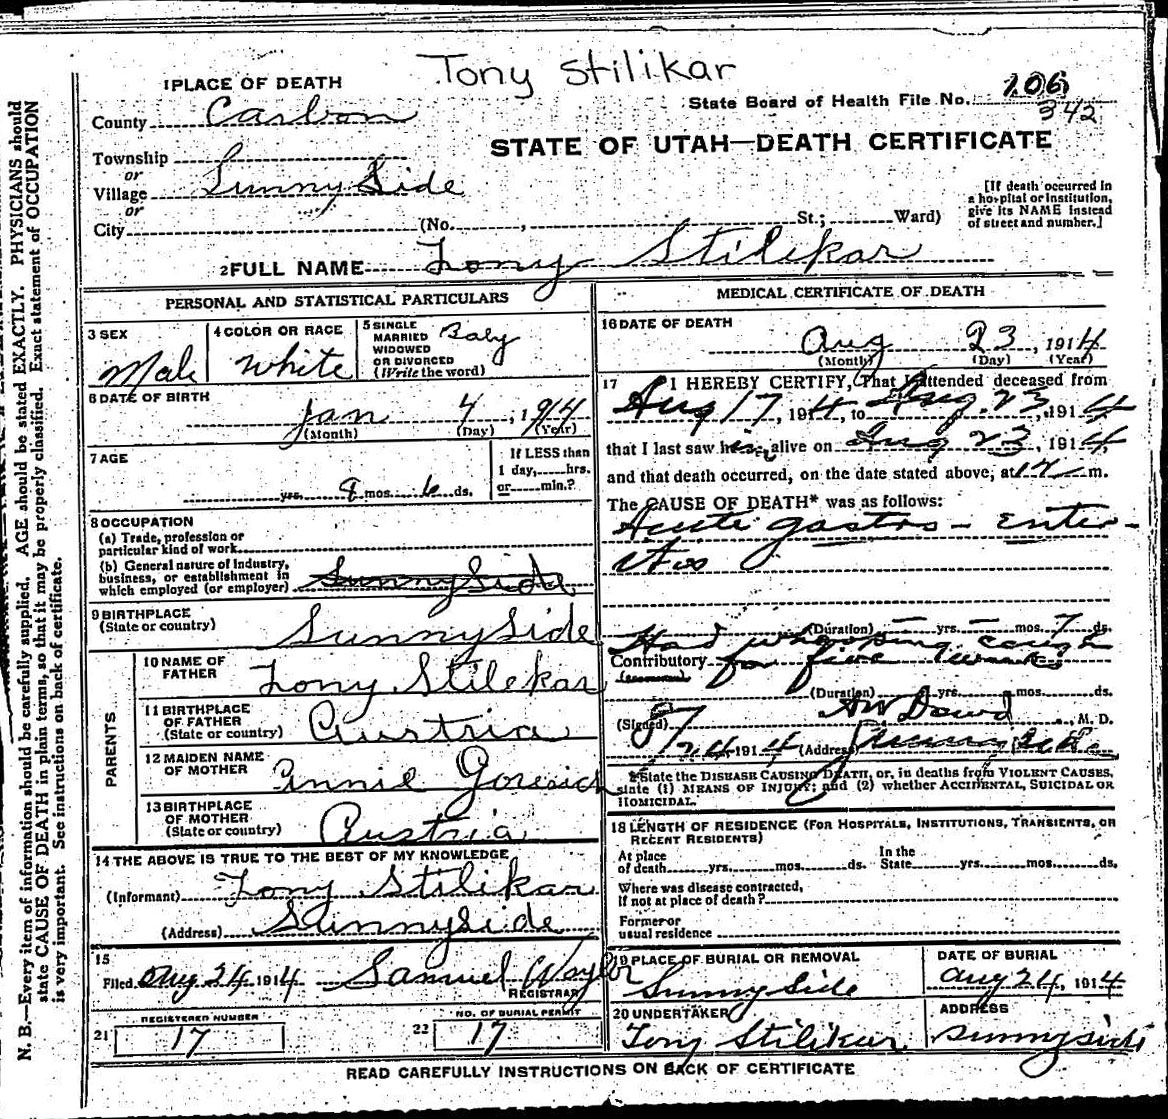 Tony Stilikar
1 PLACE OF DEATH
State Board of Health File No. 106
342
County Carbon
STATE OF UTAH—DEATH CERTIFICATE
Township
or
Village Sunny Side
or
City (No. , St.; Ward)
[If death occurred in
a hospital or institution,
give its NAME instead
of street and number.]
2 FULL NAME Tony Stilikar
PERSONAL AND STATISTICAL PARTICULARS
3 SEX
Male
4 COLOR OR RACE
White
5 SINGLE
MARRIED
WIDOWED
OR DIVORCED
(Write the word)
Baby
6 DATE OF BIRTH
Jan 4, 1914
(Month) (Day) (Year)
7 AGE
yrs. 9 mos. 6 ds.
If LESS than
1 day, hrs.
or min.?
8 OCCUPATION
(a) Trade, profession or
particular kind of work
(b) General nature of Industry,
business, or establishment in
which employed (or employer) Sunny Side
9 BIRTHPLACE
(State or country) Sunny Side
PARENTS
10 NAME OF
FATHER Tony Stilekar
11 BIRTHPLACE
OF FATHER
(State or country) Austria
12 MAIDEN NAME
OF MOTHER Annie
13 BIRTHPLACE
OF MOTHER
(State or country) Austria
14 THE ABOVE IS TRUE TO THE BEST OF MY KNOWLEDGE
(Informant) Tony Stilikar
(Address) Sunnyside
15
Filed Aug 24 1914 Samuel
REGISTRAR
21 REGISTERED NUMBER
17
22 NO. OF BURIAL PERMIT
17
MEDICAL CERTIFICATE OF DEATH
16 DATE OF DEATH
Aug 23, 1914
(Month) (Day) (Year)
17 I HEREBY CERTIFY, That I attended deceased from
Aug 17, 1914, to Aug. 23, 1914
that I last saw him alive on Aug 23, 1914,
and that death occurred, on the date stated above, at 12 m.
The CAUSE OF DEATH* was as follows:
Acute gastro-enter-
itis
(Duration) — yrs. — mos. 7 ds.
Had whooping cough
Contributory for five weeks
(Duration) yrs. mos. ds.
(Signed) AW Dowd, M. D.
8/24 1914 (Address) Sunny Side
*State the DISEASE CAUSING DEATH, or, in deaths from VIOLENT CAUSES,
state (1) MEANS OF INJURY; and (2) whether ACCIDENTAL, SUICIDAL OR
HOMICIDAL.
18 LENGTH OF RESIDENCE (FOR HOSPITALS, INSTITUTIONS, TRANSIENTS, OR
RECENT RESIDENTS)
At place
of death yrs. mos. ds.
In the
State yrs. mos. ds.
Where was disease contracted,
if not at place of death?
Former or
usual residence
19 PLACE OF BURIAL OR REMOVAL
Sunny Side
DATE OF BURIAL
Aug 24, 1914
20 UNDERTAKER
Tony Stilikar
ADDRESS
Sunnyside
READ CAREFULLY INSTRUCTIONS ON BACK OF CERTIFICATE
N. B.—Every item of information should be carefully supplied. AGE should be stated EXACTLY. PHYSICIANS should
state CAUSE OF DEATH in plain terms, so that it may be properly classified. Exact statement of OCCUPATION
is very important. See instructions on back of certificate.